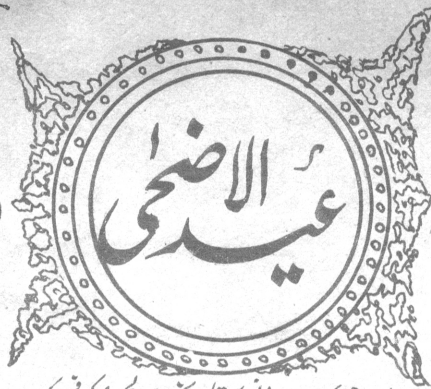 عید الاضحیٰ